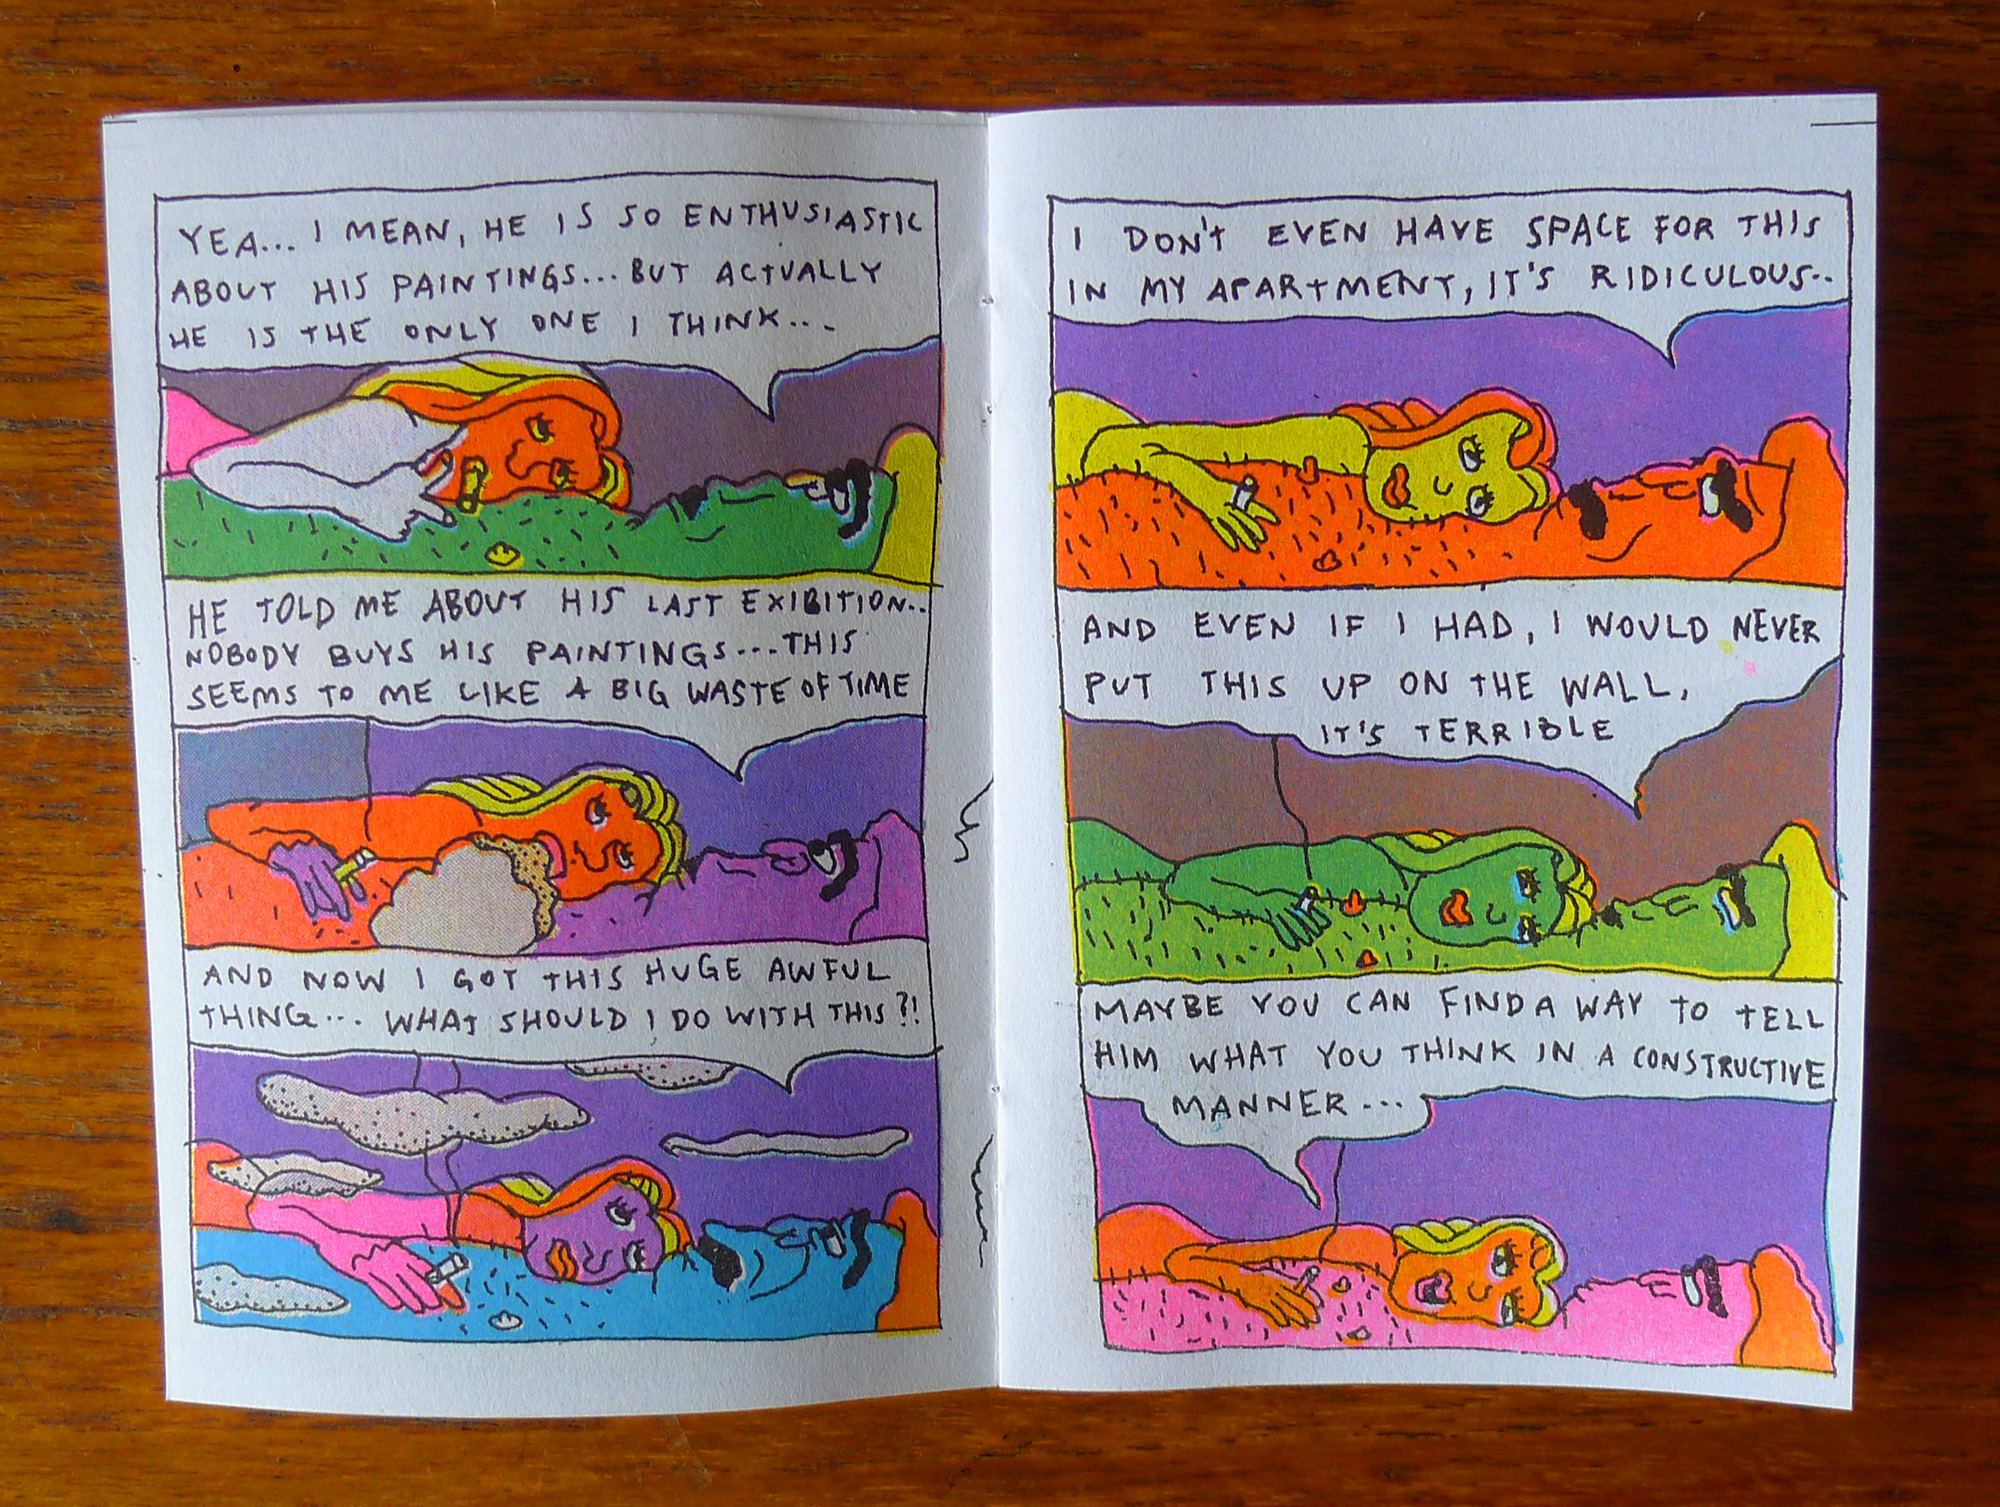 YEA... I MEAN, HE IS SO ENTHUSIASTIC
ABOUT HIS PAINTINGS... BUT ACTUALLY
HE IS THE ONLY ONE I THINK...
HE TOLD ME ABOUT HIS LAST EXIBITION..
NOBODY BUYS HIS PAINTINGS... THIS
SEEMS TO ME LIKE A BIG WASTE OF TIME
AND NOW I GOT THIS HUGE AWFUL
THING... WHAT SHOULD I DO WITH THIS?!
I DON'T EVEN HAVE SPACE FOR THIS
IN MY APARTMENT, IT'S RIDICULOUS..
AND EVEN IF I HAD, I WOULD NEVER
PUT THIS UP ON THE WALL,
IT'S TERRIBLE
MAYBE YOU CAN FIND A WAY TO TELL
HIM WHAT YOU THINK IN A CONSTRUCTIVE
MANNER...